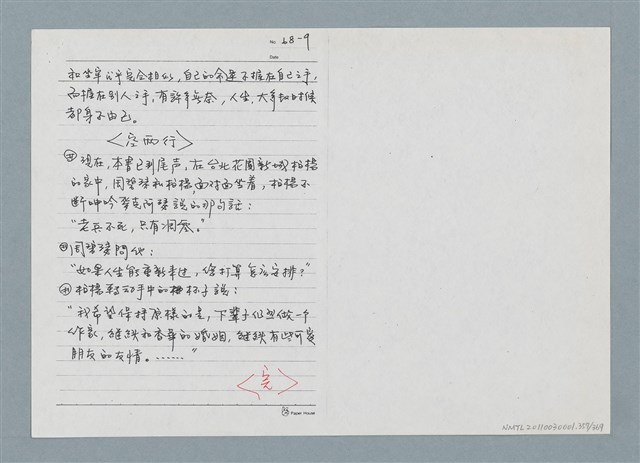 No. 68-9
Date
和坐牢時完全相似，自己的命運不握在自己之手，
而握在別人之手，有許多無奈，人生，大多數時候
都身不由己。
<空兩行>
現在，本書已到尾声，在台北花園新城柏楊
的家中，周碧瑟和柏楊，面对面坐着，柏楊不
断呻吟麥克阿瑟說的那句話：
“老兵不死，只有凋零。”
周碧瑟問他：
“如果人生能重新來過，你打算怎麼安排？”
柏楊轉动手中的杯子說：
“我希望保持原樣的是，下輩子仍想做一个
作家，继续和香華的婚姻，继续有些可愛
朋友的友情。……”
<完>
Paper House
NMTL20110030001.357/369